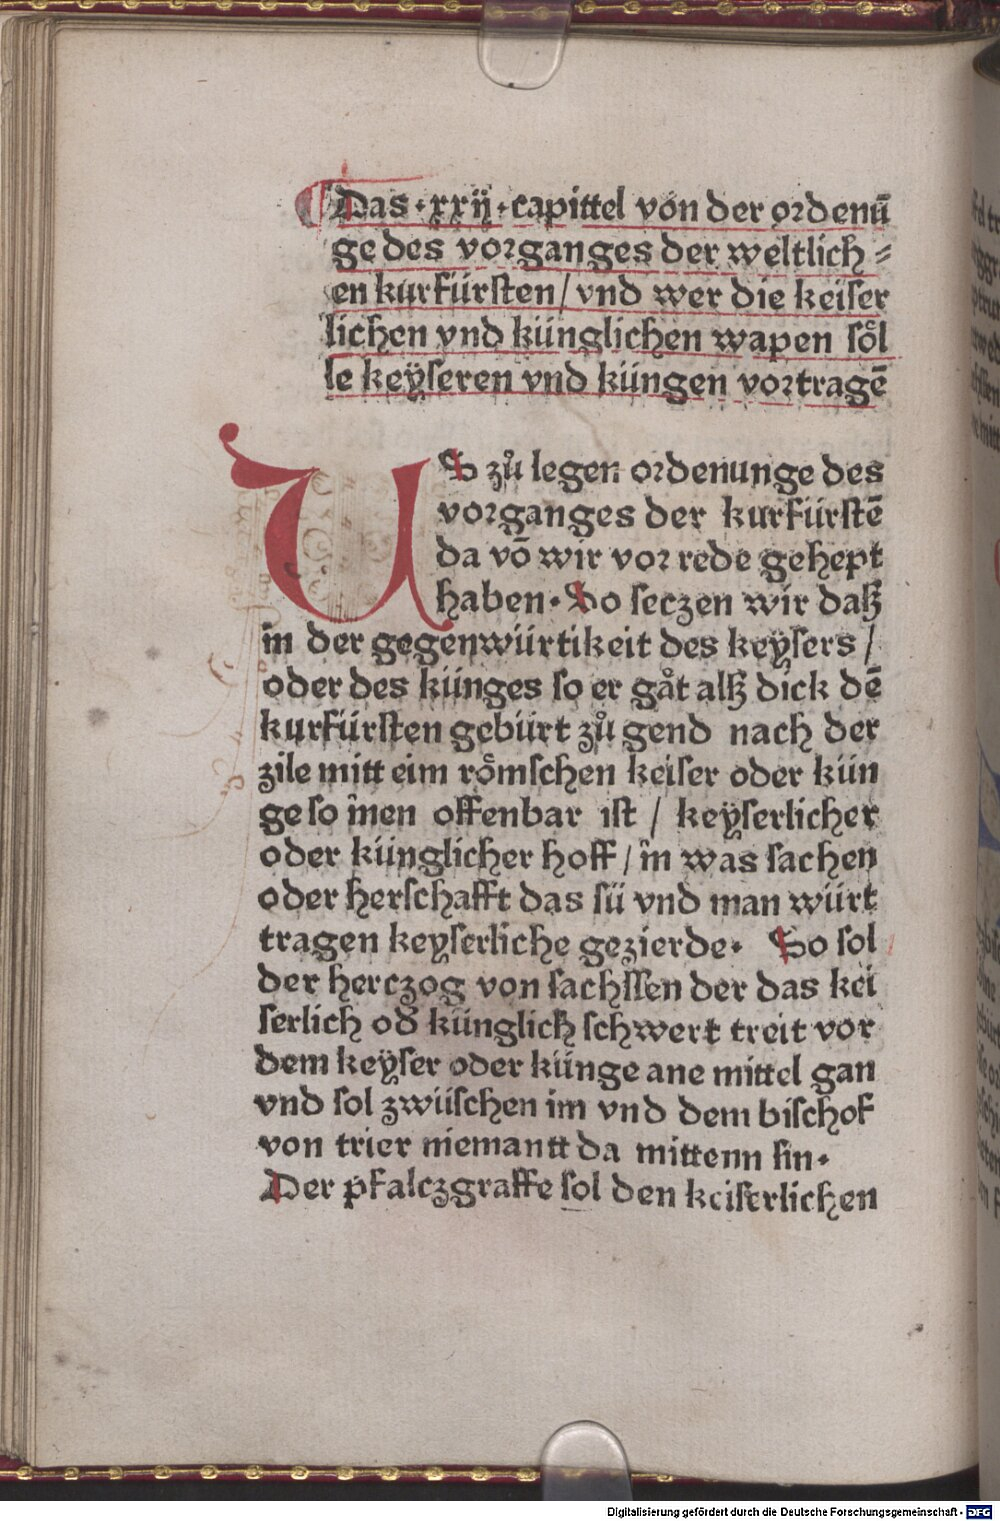 Das · xxij · capittel von der ordenū
ge des vorganges der weltlich ⸗
en kurfürsten / vnd wer die keiser
lichen vnd künglichen wapen soͤl
le keÿseren vnd küngen vortragē
US zuͦ legen ordenunge des
vorganges der kurfürstē
da vō wir vor rede gehept
haben · So seczen wir daß
in der gegenwürtikeit des keÿsers /
oder des künges so er gaͦt alß dick dē
kurfürsten gebürt zuͦ gend nach der
zile mitt eim roͤmschen keiser oder kün
ge so inen offenbar ist / keÿserlicher
oder künglicher hoff / in was sachen
oder herschafft das sü vnd man würt
tragen keyserliche gezierde · So sol
der herczog von sachssen der das kei
serlich od̕ künglich schwert treit vor
dem keÿser oder künge ane mittel gan
vnd sol zwüschen im vnd dem bischof
von trier niemantt da mittenn sin ·
Der pfalczgraffe sol den keiserlichen
Digitalisierung gefördert durch die Deutsche Forschungsgemeinschaft - DFG